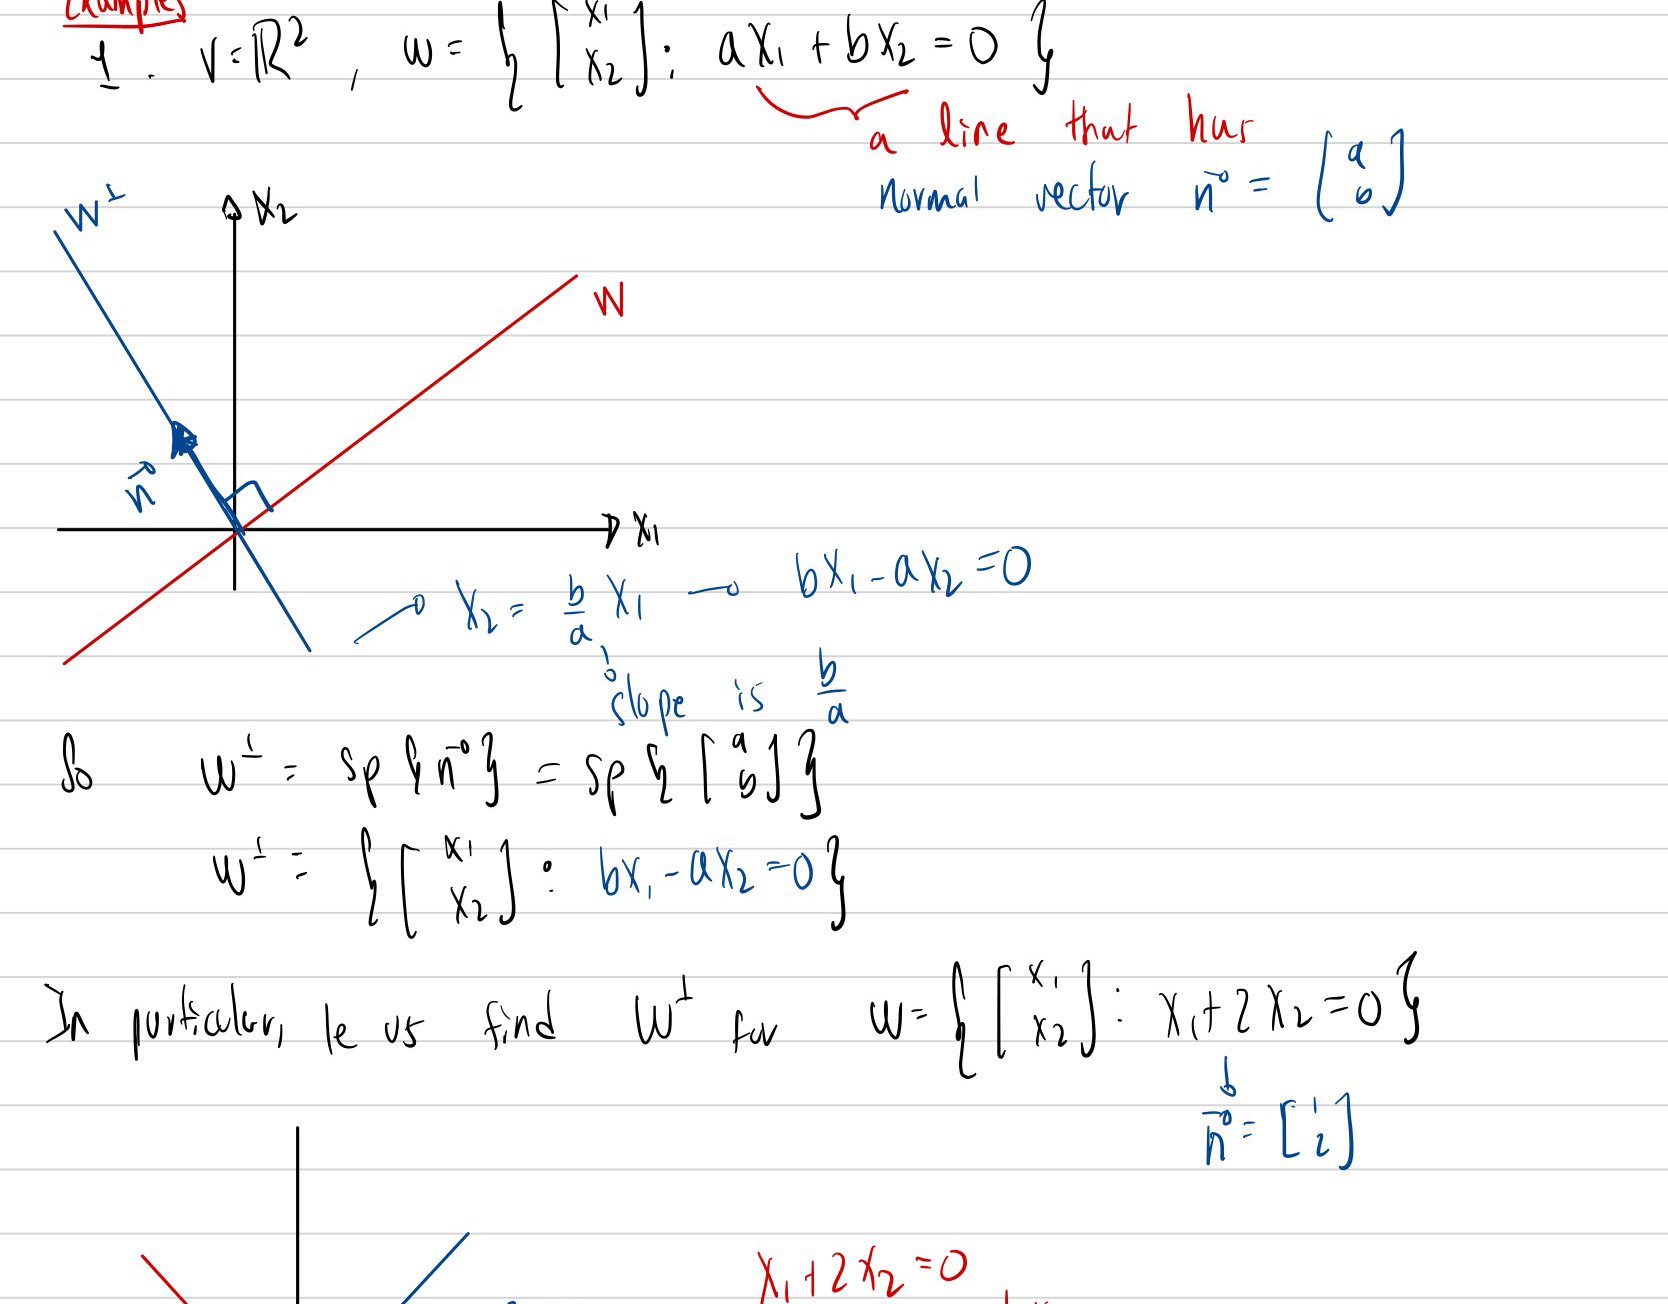 Examples
1. V = ℝ², W = { [x₁ x₂] : ax₁ + bx₂ = 0 }
a line that has
normal vector n⃗ = [a b]
W⊥
x₂
W
n⃗
x₁
→ x₂ = b/a x₁ → bx₁ - ax₂ = 0
slope is b/a
So W⊥ = sp{n⃗} = sp{[a b]}
W⊥ = { [x₁ x₂] : bx₁ - ax₂ = 0 }
In particular, le us find W⊥ for W = { [x₁ x₂] : x₁ + 2x₂ = 0 }
n⃗ = [1 2]
x₁ + 2x₂ = 0